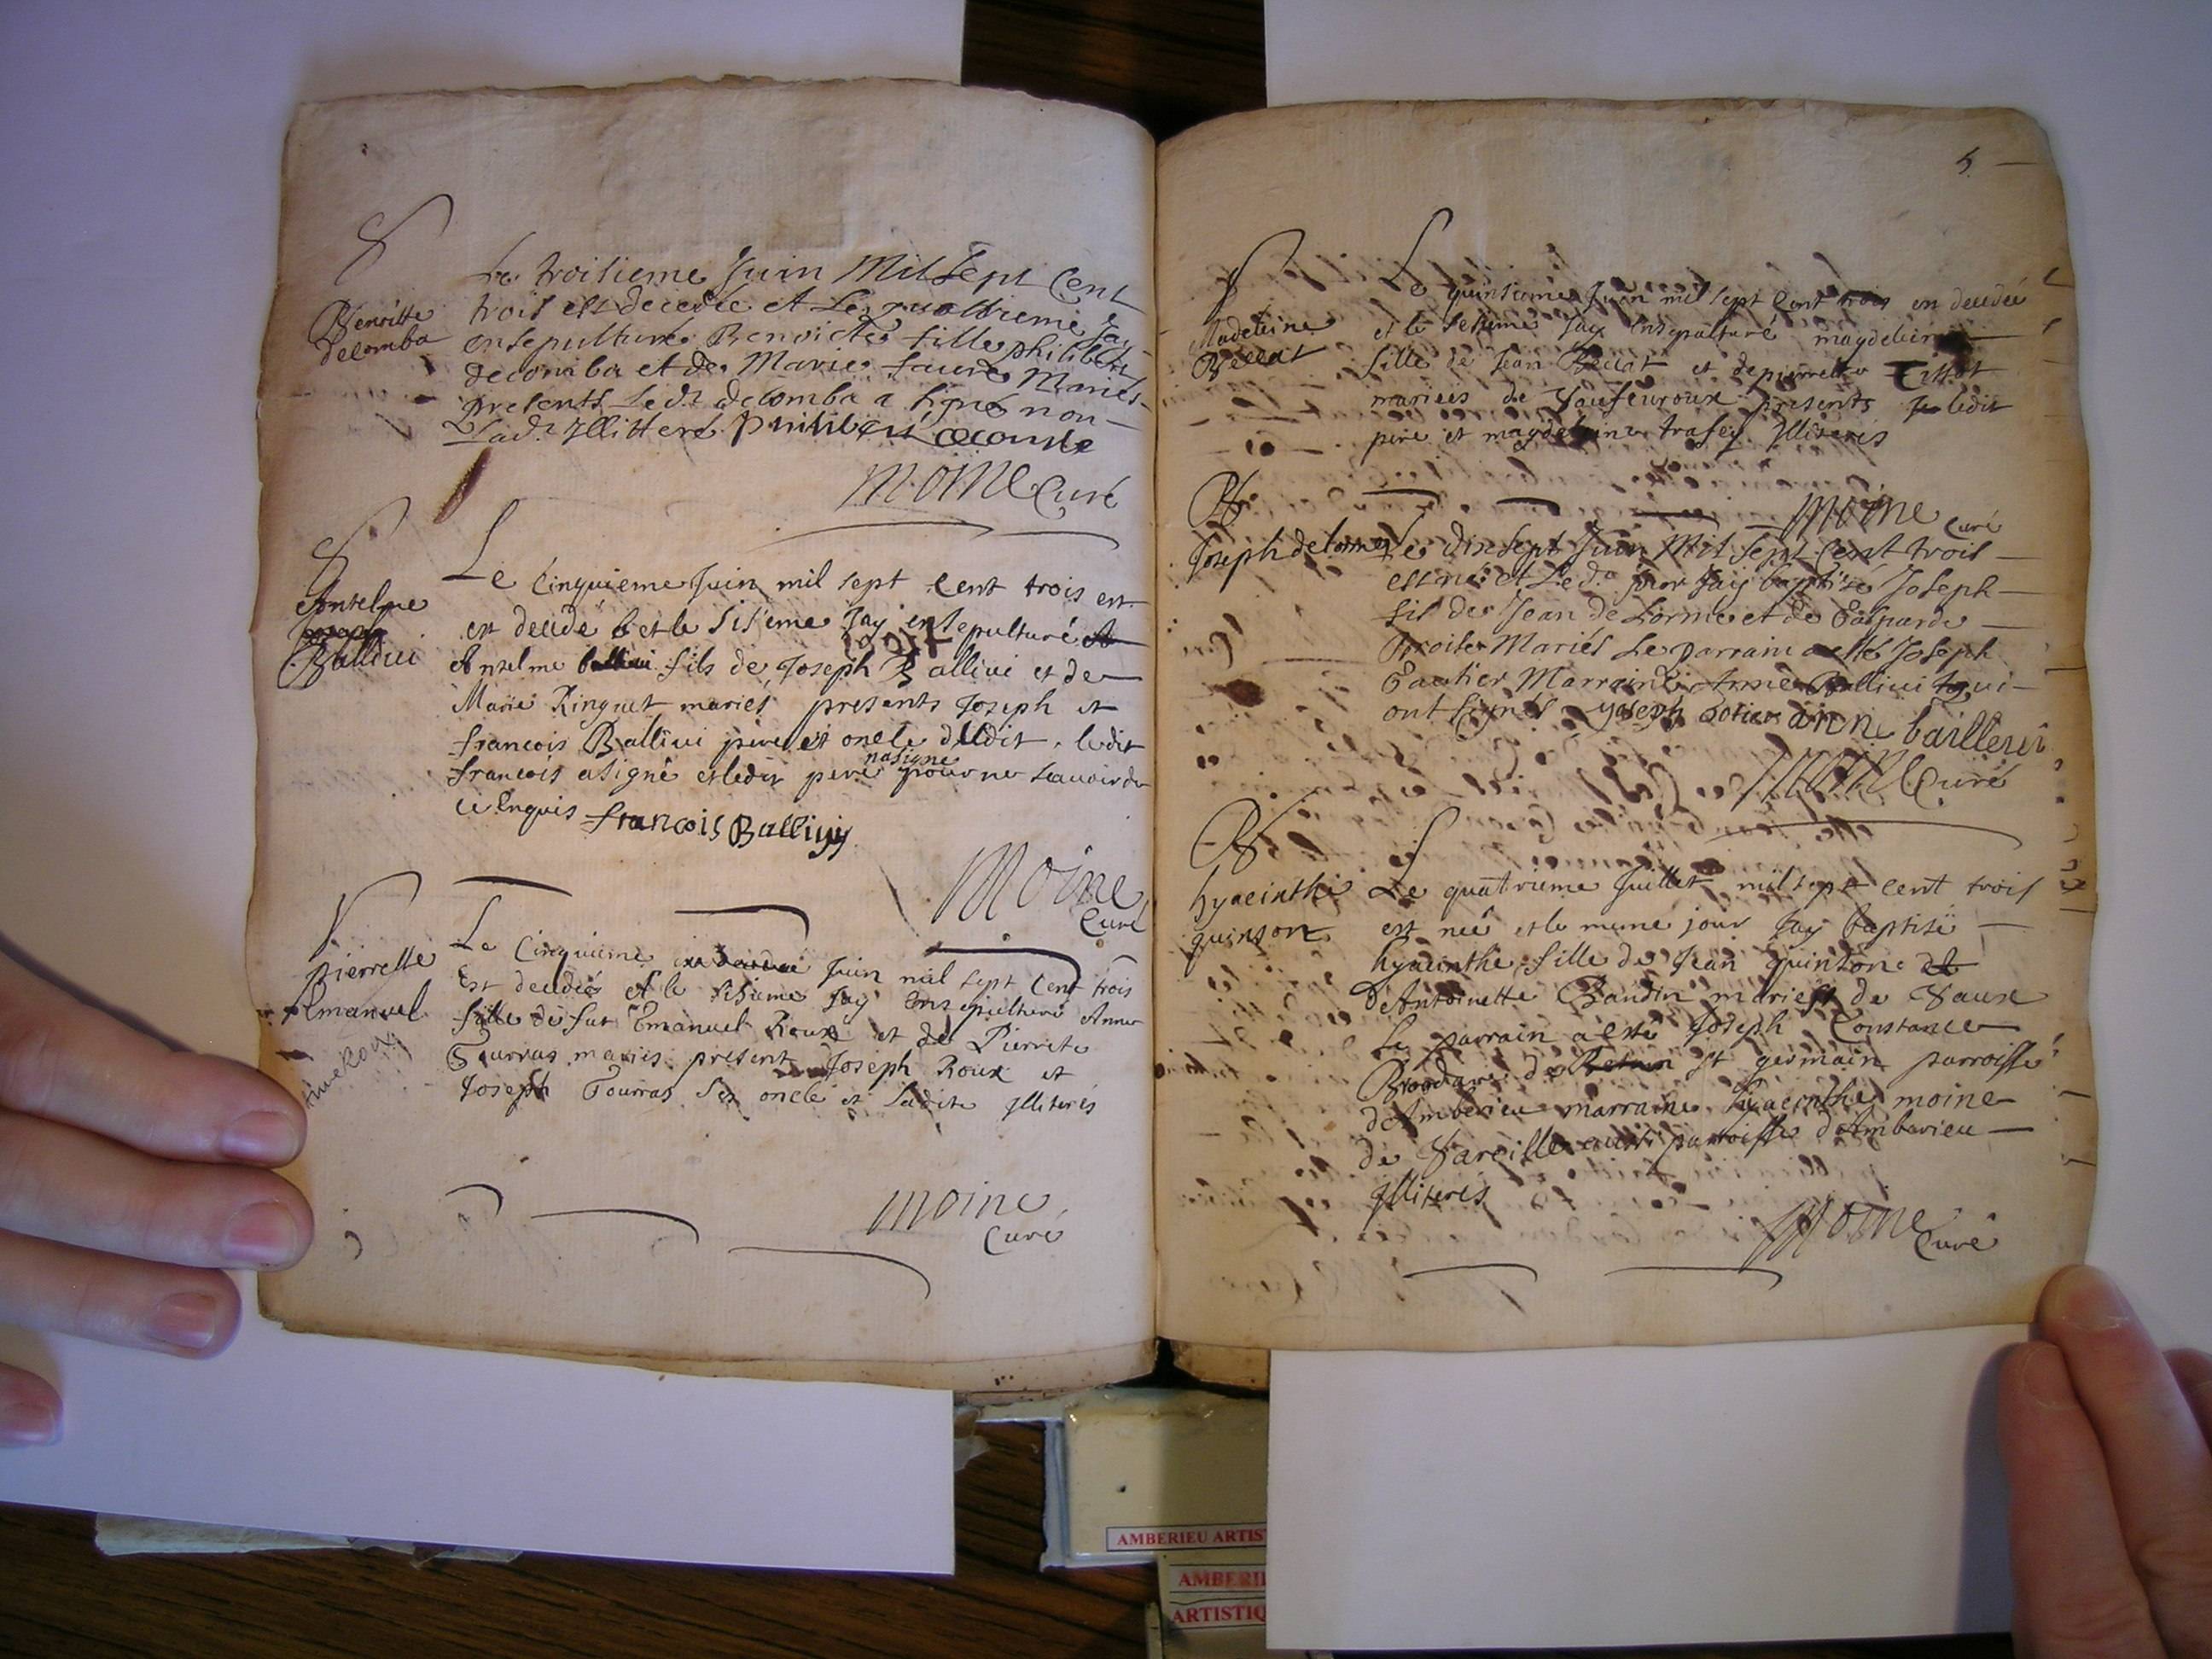 S
Benoitte
Decomba
Le troisieme Juin Mil Sept Cent
trois est decedée et Le quattrieme Jay
ensepulturé Benoicte fille philibert
decomba et de Marie faure Mariés
presents Le dt decomba a signé non
Lad. Illitteré philibert decombe
Moine Curé
S
Anselme
Ballivi
Le Cinquieme Juin mil sept cent trois est
est decedé et le sisieme Jay ensepulturé
Anselme fils de Joseph Ballivi et de
Marie Ringuet mariés presents Joseph et
francois Ballivi pere et oncle dudit, ledit
nasigné
francois a signé et ledit pere pour ne scavoir de
ce Enquis francois Balliuy
Moine
Curé
S
pierrette
Emanuel
Roux
Le Cinquieme Juin mil sept Cent trois
Est decedée et le sisieme Jay Ensepulturé Anne
fille de fut Emanuel Roux et de Pierrete
Tourras mariés present Joseph Roux et
Joseph Tourras ses oncle et ladite Illiterés
Moine
Curé
5
S
Madeleine
Bellat
Le quinsieme Juin mil sept Cent trois est decedée
et le sesieme Jay Ensepulturé magdeleine
fille de Jean Bellat et de pierrette Tissot
mariées de Vaufevroux presents ledit
pere et magdeleine trafey Illiterés
Moine Curé
B
Joseph delorme
Le dixsept Juin Mil Sept Cent trois
est né et Le d. jour Jay baptisé Joseph
fils de Jean de Lorme et de Gasparde
Mariés Le parrain a esté Joseph
Gautier Marraine Anne Ballivi qui
ont signés yoseph Gotier anne baillevi
Moine Curé
B
hyacinthe
quinson
Le quatrieme Juillet mil sept cent trois
est née et le meme jour Jay baptisé
hyacinthe fille de Jean quinson et
d'Antoinette Baudin mariest de Vaux
Le parrain a esté Joseph Constance
de St germain parroisse
d'Amberieu marraine hyacinthe moine
de Vareille aussi parroisse d'Amberieu
Illiterés
Moine Curé
AMBERIEU ARTIS
AMBERI
ARTISTIQ